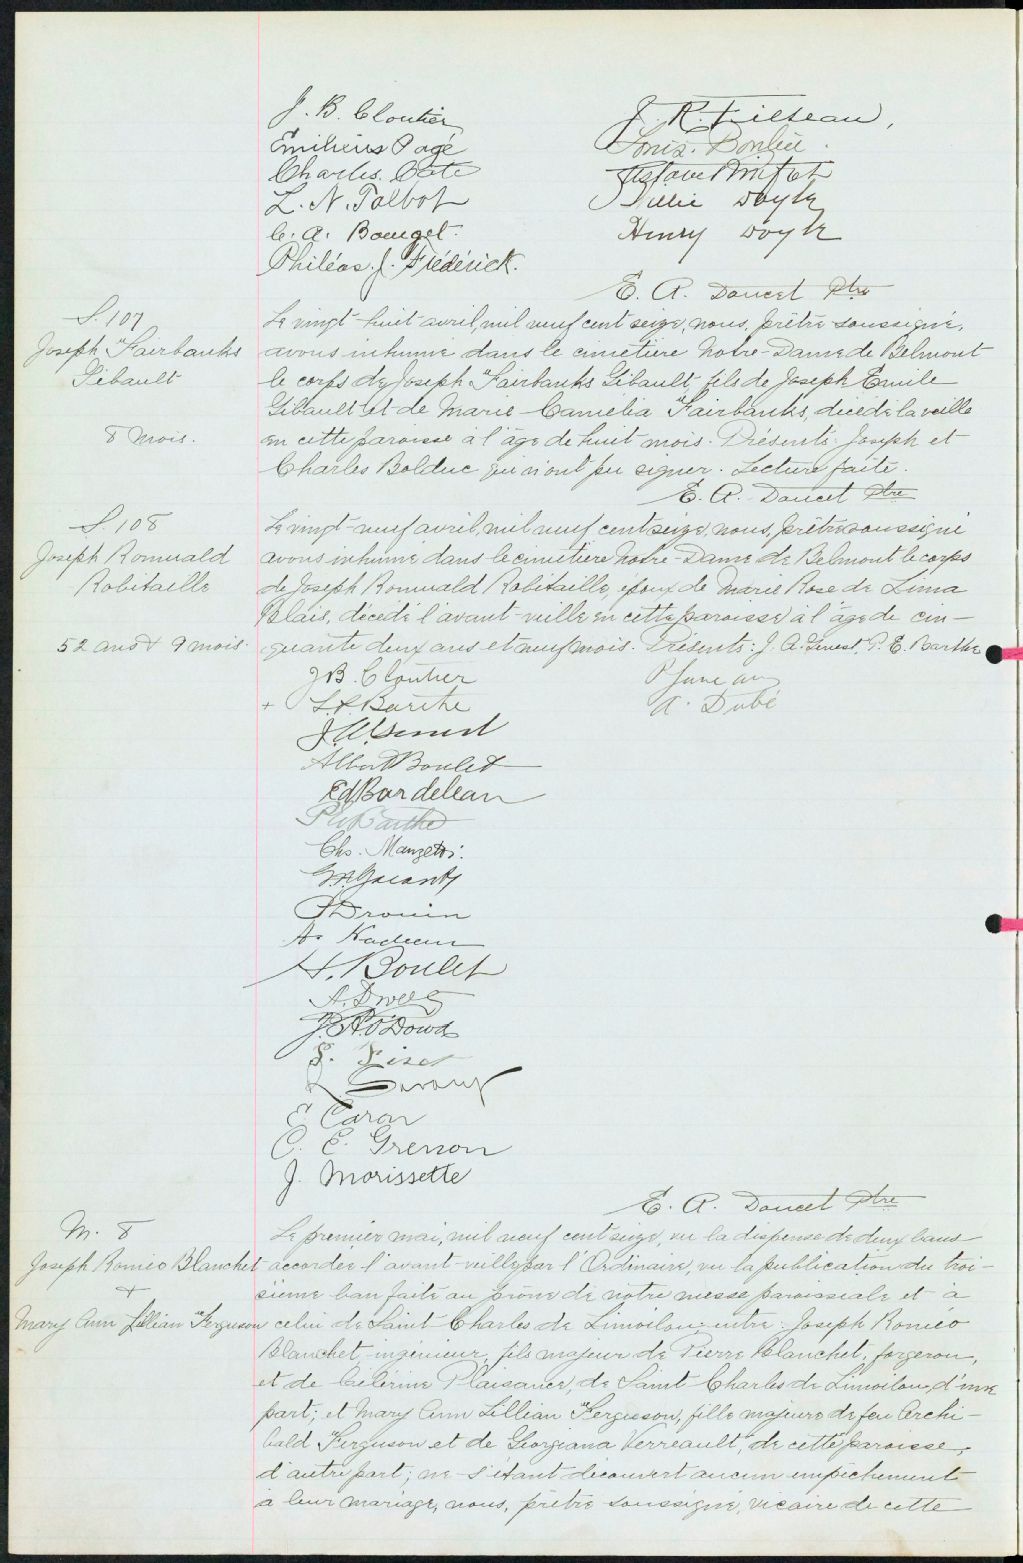 J. B. Cloutier
Emiliens Pagé
Charles. Coté
L. N. Talbot
C. A. Bouget.
Philéas. J. Frédérick.
J. R. Filteau,
Louis.
Willie Doyle
Henry Doyle
E. A. Doucet Ptre
S. 107
Joseph Fairbanks
Gibault
8 mois.
Le vingt-huit avril, mil neuf cent seize, nous, prêtre soussigné,
avons inhumé dans le cimetière Notre-Dame de Belmont
le corps de Joseph Fairbanks Gibault, fils de Joseph Emile
Gibault et de Marie-Camélia Fairbanks, décédé la veille
en cette paroisse à l'âge de huit mois. Présents: Joseph et
Charles Bolduc qui n'ont pu signer. Lecture faite.
E. A. Doucet Ptre
S. 108
Joseph Romuald
Robitaille
52 ans & 9 mois.
Le vingt-neuf avril, mil neuf cent seize, nous, prêtre soussigné
avons inhumé dans le cimetière Notre-Dame de Belmont le corps
de Joseph Romuald Robitaille, époux de Marie Rose de Lima
Blais, décédé l'avant-veille en cette paroisse à l'âge de cin-
quante deux ans et neuf mois. Présents: J. A. Genest, P. E. Barthe
J B. Cloutier
+ Barthe
J. A. Genest
Albert Boulet
Ed Bordeleau
Barthe
Chs. Manzetti.
Drouin
A. Nadeau
H. Boulet
A.
O'Dowd
E Caron
C. E. Grenon
J. Morissette
P Juneau
A. Dubé
E. A. Doucet Ptre
M. 8
Joseph Roméo Blanchet
+
Mary Ann Lillian Ferguson
Le premier mai, mil neuf cent seize, vu la dispense de deux bans
accordée l'avant-veille par l'Ordinaire, vu la publication du troi-
sième ban faite au prône de notre messe paroissiale et à
celui de Saint Charles de Limoilou, entre: Joseph Roméo
Blanchet, ingénieur, fils majeur de Pierre Blanchet, forgeron,
et de Célérine Plaisance, de Saint Charles de Limoilou, d'une
part; et Mary Ann Lillian Fergusson, fille majeure de feu Archi-
bald Ferguson et de Georgiana Verreault, de cette paroisse,
d'autre part; ne s'étant découvert aucun empêchement
à leur mariage, nous, prêtre soussigné, vicaire de cette